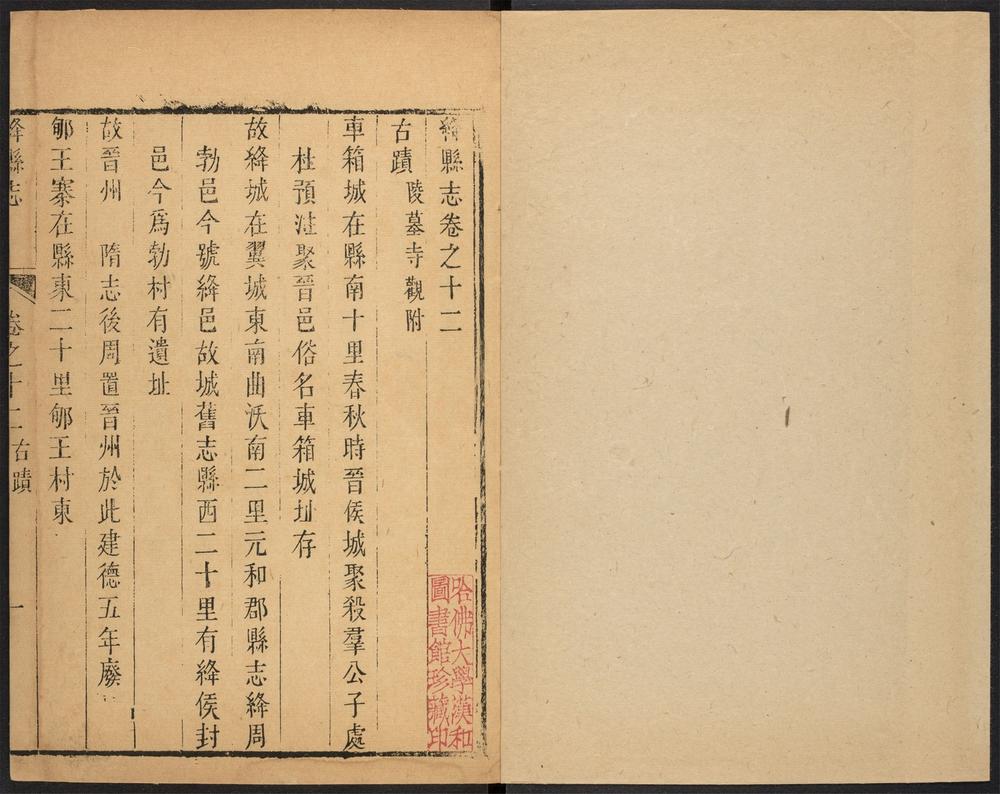 絳縣志卷之十二
古蹟 陵墓寺觀附
車箱城在縣南十里春秋時晉侯城聚殺羣公子處
杜預註聚晉邑俗名車箱城址存
故絳城在翼城東南曲沃南二里元和郡縣志絳周
勃邑今號絳邑故城舊志縣西二十里有絳侯封
邑今爲勃村有遺址
故晉州 隋志後周置晉州於此建德五年廢
郇王寨在縣東二十里郇王村東
絳縣志 卷之十二 古蹟 一
哈佛大學漢和
圖書館珍藏印